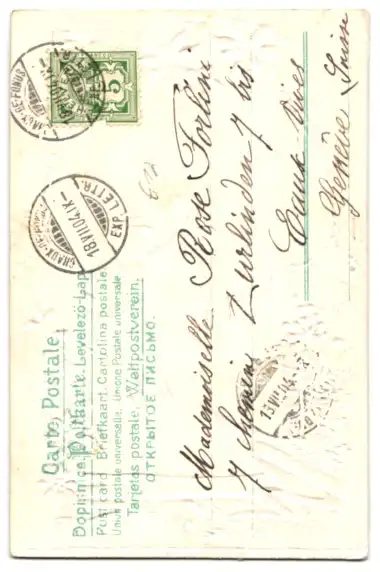 Carte Postale
Dopisnica Postkarte. Levelező-Lap
Post card Briefkaart. Cartolina postale
Union postale universelle. Unione Postale universale
Tarjetas postale. Weltpostverein.
ОТКРЫТОЕ ПИСЬМО.
5
18 VII 04 IX
EXP. LETTR.
CHAUX-DE-FONDS
Mademoiselle Rose
7 Chemin Zurlinden 7 bis
Eaux Vives
Genève Suisse